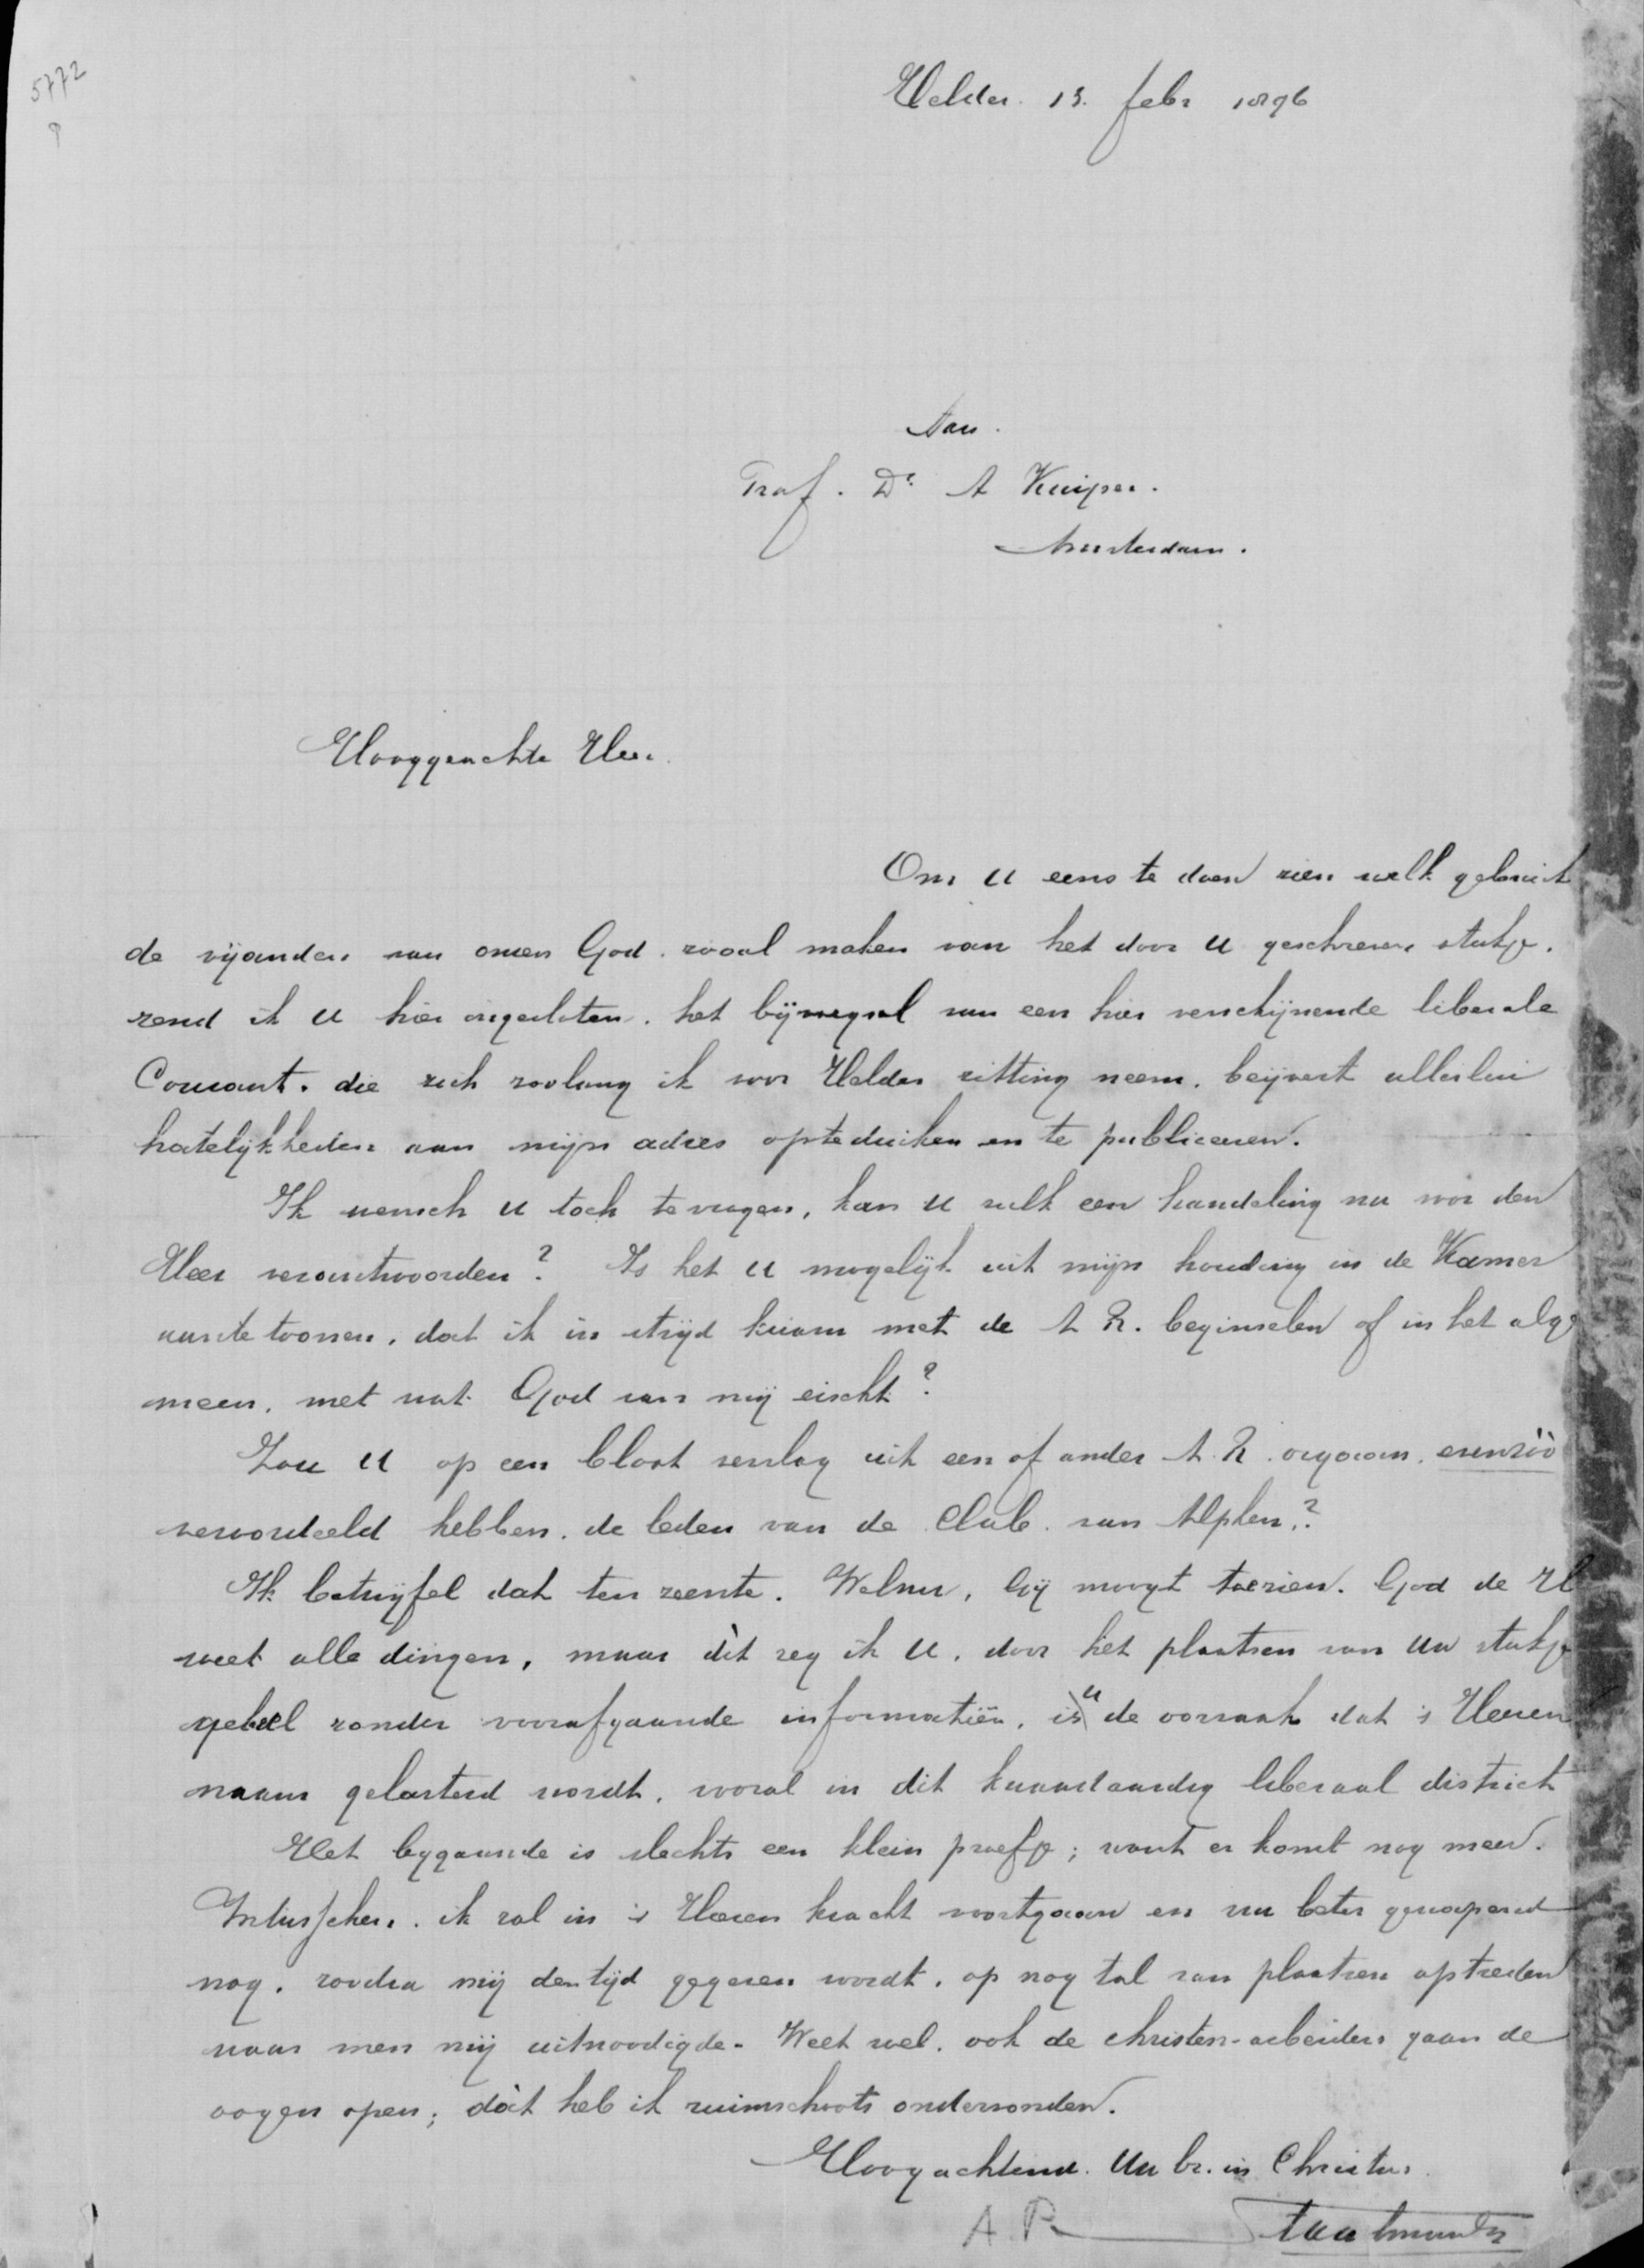 5772
Helder. 13. febr 1896
Aan.
Prof. Dr. A Kuiper.
Amsterdam.
Hooggeachte Heer.
Om U eens te doen zien welk gebruik
de vijanden van onzen God. zooal maken van het door U geschreven stukje.
zend ik U hier ingesloten. het bijvoegsel van een hier verschijnende liberale
Courant. die zich zoolang ik voor Helder zitting neem. beijvert allerlei
hatelijkheden aan mijn adres opteduiken en te publiceeren.
Ik wensch U toch te vragen, kan U zulk een handeling nu voor den
Heer verantwoorden? Is het U mogelijk uit mijn houding in de Kamer
aante toonen, dat ik in strijd kwam met de A R. beginselen of in het alge
meen, met wat God van mij eischt?
Zou U op een bloot verslag uit een of ander A. R. orgaan, evenzóó
veroordeeld hebben. de leden van de Club. van Alphen.?
Ik betwijfel dat ten zeerste. Welnu, Gij moogt toezien. God de H
weet alle dingen, maar dìt zeg ik U, door het plaatsen van Uw stukje
geheel zonder voorafgaande informatiën, is U de oorzaak dat 's Heeren
naam gelasterd wordt, vooral in dit kwaadaardig liberaal district
Het bygaande is slechts een klein proefje; want er komt nog meer.
Intusschen. ik zal in 's Heeren kracht voortgaan en nu beter gewapend
nog. zoodra mij den tijd gegeven wordt. op nog tal van plaatsen optreden
waar men mij uitnoodigde. Weet wel. ook de christen-arbeiders gaan de
oogen open; dàt heb ik ruimschoots ondervonden.
Hoogachtend. Uw br. in Christus.
A. P. Staalman